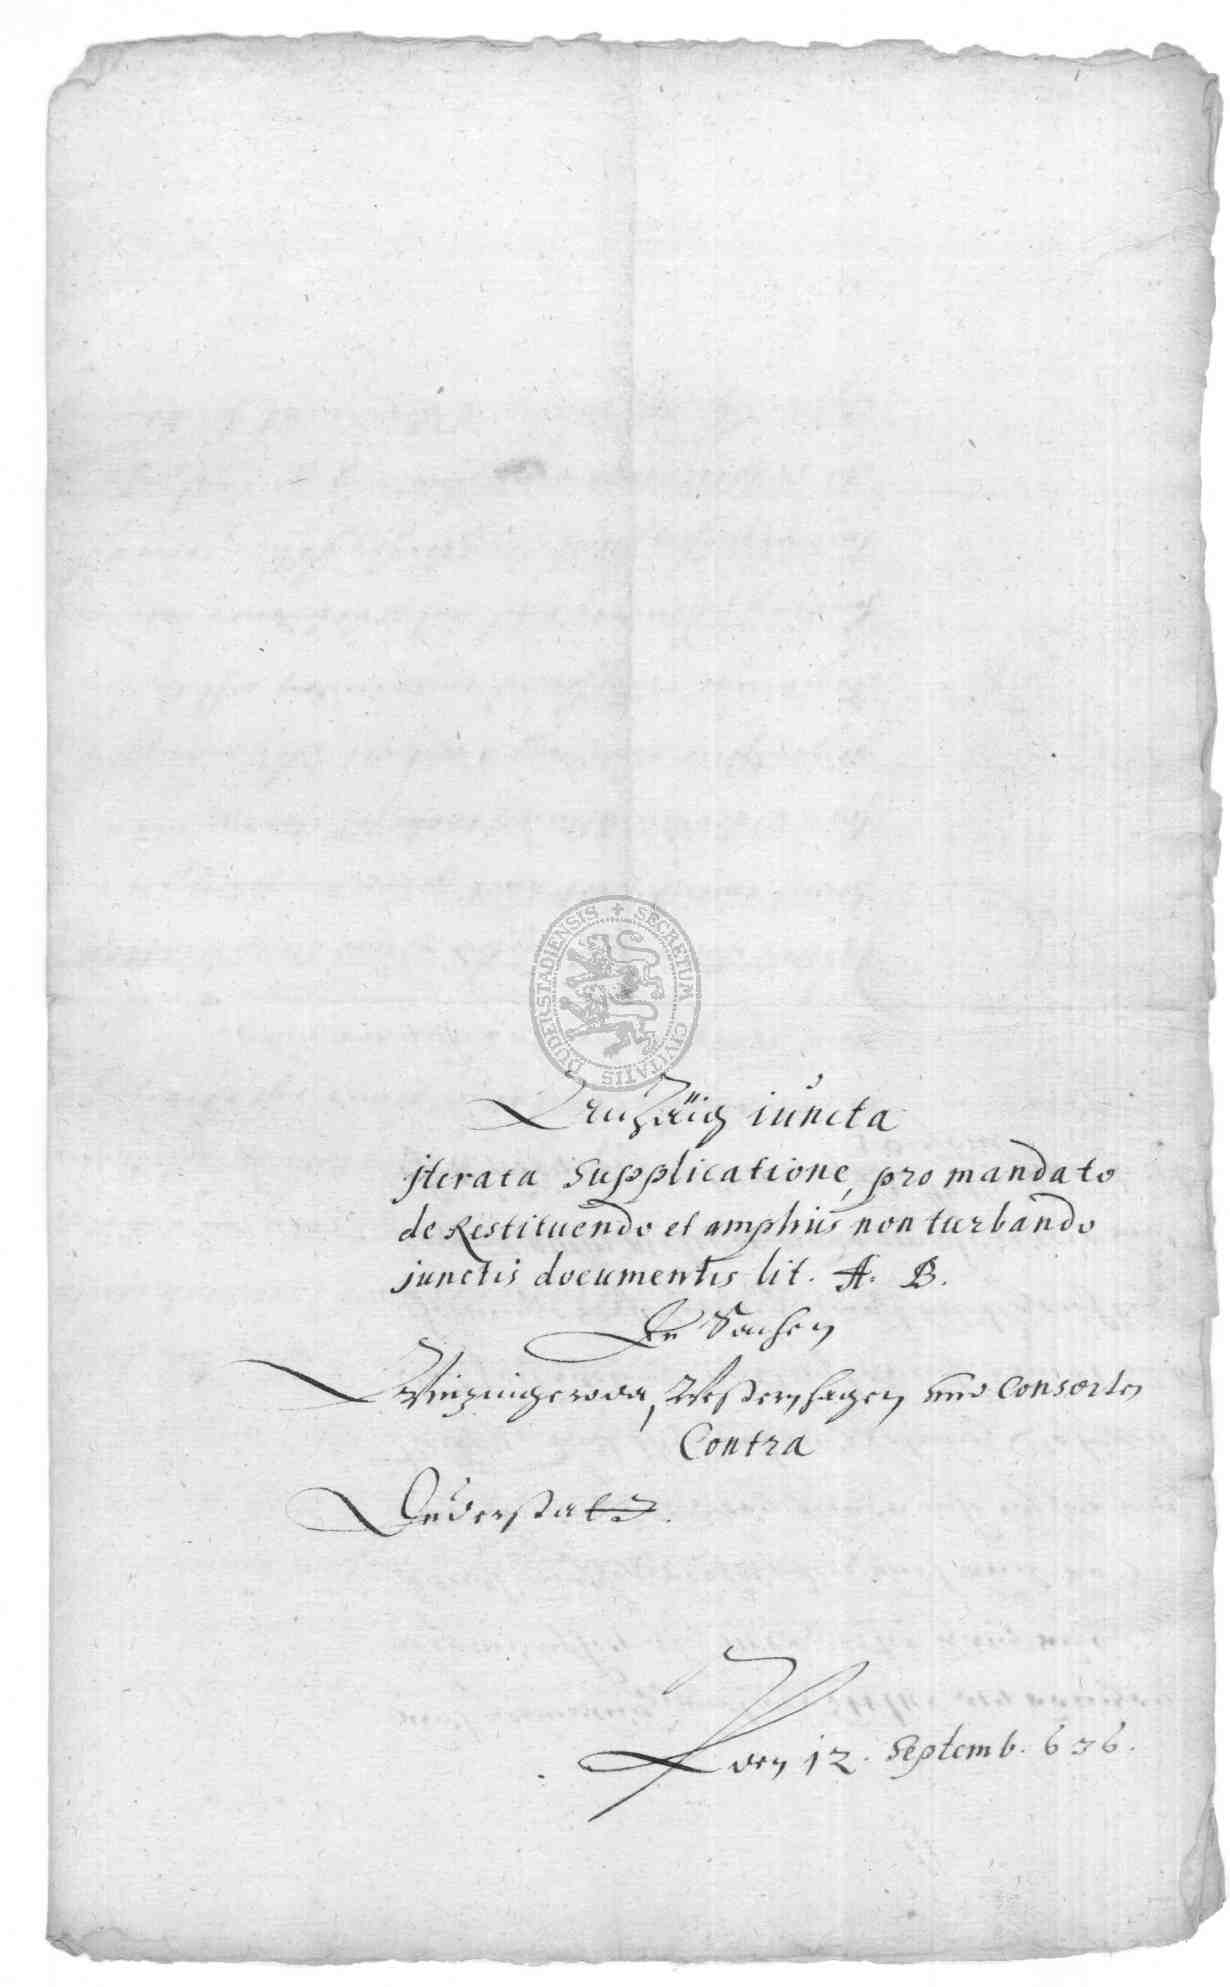 SECRETUM CIVITATIS DUDERSTADIENSIS
Anzeig iuncta
jterata Supplicatione, pro mandato
de Restituendo et amplius non turbando
junctis documentis lit. A. B.
In Sachen
Winzingeroda, Westernhagen und Consorten
Contra
Duderstatt.
den 12. Septemb. 636.